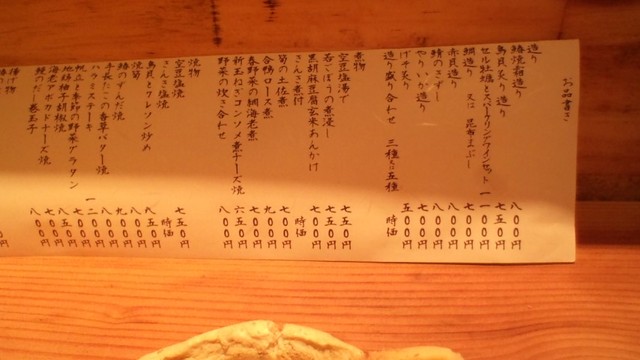 お品書き
造り
鰆焼霜造り 八〇〇円
鳥貝炙り造り 七五〇円
セル牡蠣とスパークリングワインセット 一一〇〇円
鯛造り 又は 昆布〆 七〇〇円
赤貝造り
鯖のきずし 八〇〇円
やりいか造り 八〇〇円
げそ炙り 五〇〇円
造り盛り合わせ 三種 五種 時価
煮物
空豆塩ゆで 五〇〇円
若ごぼうの煮浸し 七五〇円
黒胡麻豆腐玄米あんかけ 七〇〇円
きんき煮付 時価
筍の土佐煮 七〇〇円
合鴨ロース煮 九〇〇円
春野菜の鯛海老煮 七〇〇円
新玉ねぎコンソメ煮チーズ焼 六五〇円
野菜の炊き合わせ 八〇〇円
焼物
空豆塩焼 七五〇円
きんき塩焼 時価
鳥貝とクレソン炒め 八五〇円
焼筍 八〇〇円
鰆のずんだ焼 九〇〇円
手長だこの香草バター焼 八〇〇円
ハラミステーキ 一二〇〇円
帆立と季節の野菜グラタン 八〇〇円
地鶏柚子胡椒焼 八五〇円
海老アボカドチーズ焼 七〇〇円
鰻のだし巻玉子 八〇〇円
揚げ物